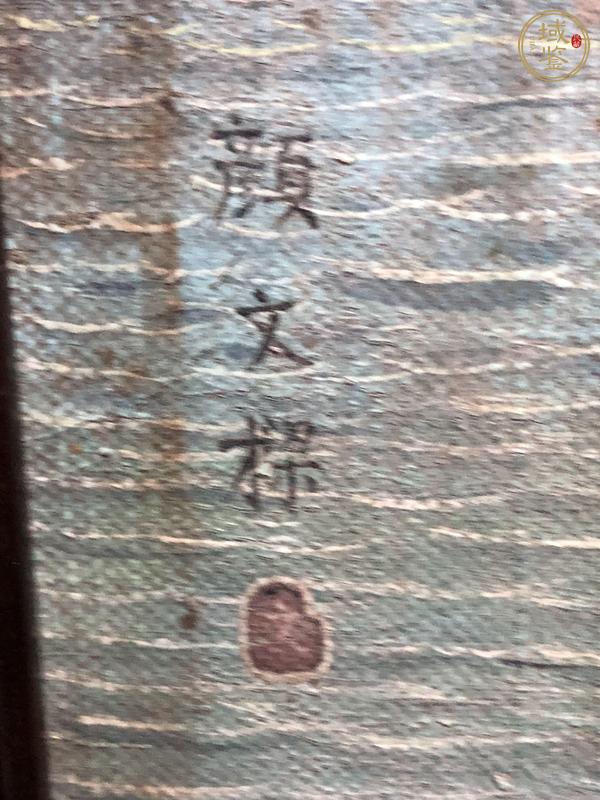 顔文樑
域鉴